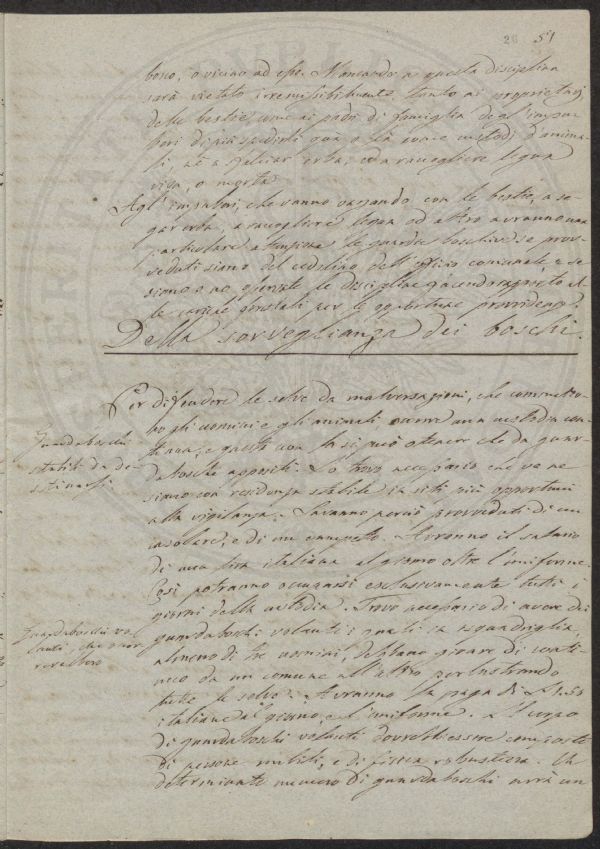 26 51
bosco, o vicino ad esse. Mancando a questa disciplina
sarà vietato irremissibilmente tanto ai proprietarj
delle bestie, come ai padri di famiglia degl'impu-
beri di più spedirli qua e là come custodi d'anima-
li, nè a falciar erba, od a raccogliere legna
viva, o morta.
Agl'impuberi, che vanno vagando con le bestie, a se-
gar erba, a raccogliere legna od altro avranno una
particolare attenzione le guardie boschive se prov-
veduti siano del cedolino dell'Uffizio comunale, e se
siano o no osservate le discipline facendo rapporto al-
le cariche forestali per le opportune provvidenze.
Della sorveglianza dei boschi.
Per difendere le selve da malversazioni, che commetto-
no gli uomini e gli animali occorre una custodia con-
tinua, e questa non la si può ottenere che da guar-
daboschi appositi. Io trovo necessario che ve ne
siano con residenza stabile in siti più opportuni
alla vigilanza. Saranno perciò provveduti di un
casolare, e di un campetto. Avranno il salario
di una lira italiana al giorno oltre l'uniforme.
Così potranno occuparsi esclusivamente tutti i
giorni della custodia. Trovo necessario di avere dei
guardaboschi volanti i quali in squadriglia,
almeno di tre uomini, debbano girare di conti-
nuo da un comune all'altro perlustrando
tutte le selve. Avranno la paga di L 1.50
italiane al giorno, e l'uniforme. Il corpo
di guardaboschi volanti dovrebb'essere composto
di persone nubili, e di fisica robustezza. Un
determinato numero di guardaboschi avrà un
Guardaboschi
stabili da de-
stinarsi.
Guardaboschi vo-
lanti, che